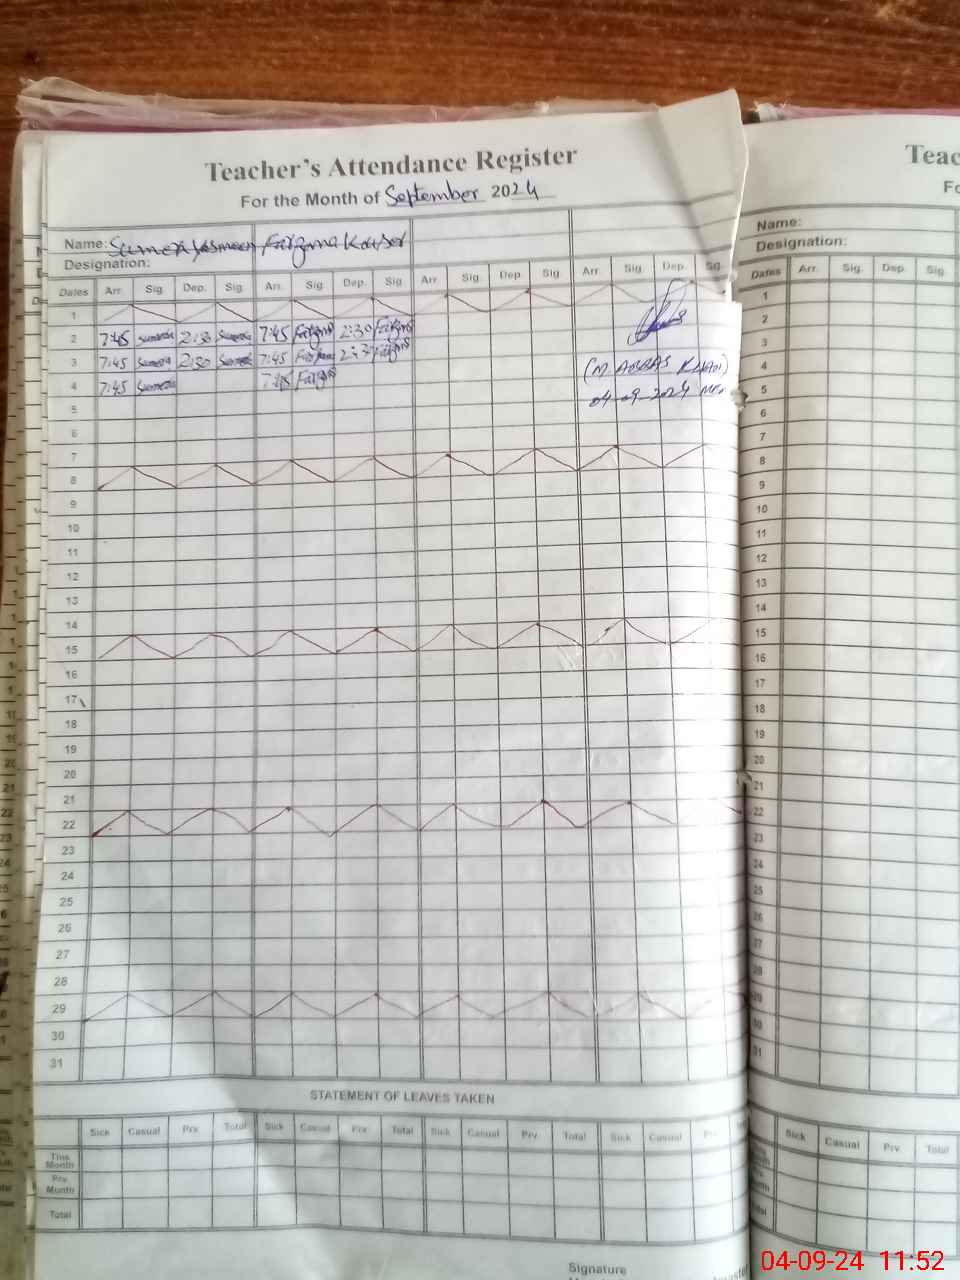 Teacher's Attendance Register
For the Month of September 2024
Name: Sumera Yasmeen Farzana Kausar
Designation:
Dates Arr. Sig. Dep. Sig. Arr. Sig. Dep. Sig. Arr. Sig. Dep. Sig. Arr. Sig. Dep. Sig.
1
2 7:45 Sumera 2:30 Sumera 7:45 Farzana 2:30 Farzana
3 7:45 Sumera 2:30 Sumera 7:45 Farzana 2:30 Farzana
4 7:45 Sumera 7:45 Farzana
(M. ABBAS KHAN)
04-09-2024
5
6
7
8
9
10
11
12
13
14
15
16
17
18
19
20
21
22
23
24
25
26
27
28
29
30
31
STATEMENT OF LEAVES TAKEN
Sick Casual Prv. Total Sick Casual Prv. Total Sick Casual Prv. Total Sick Casual
This Month
Prv. Month
Total
Signature
Teac
Name:
Designation:
Dates Arr. Sig. Dep. Sig.
1
2
3
4
5
6
7
8
9
10
11
12
13
14
15
16
17
18
19
20
21
22
23
24
25
26
27
28
29
30
31
Sick Casual Prv. Total
04-09-24 11:52